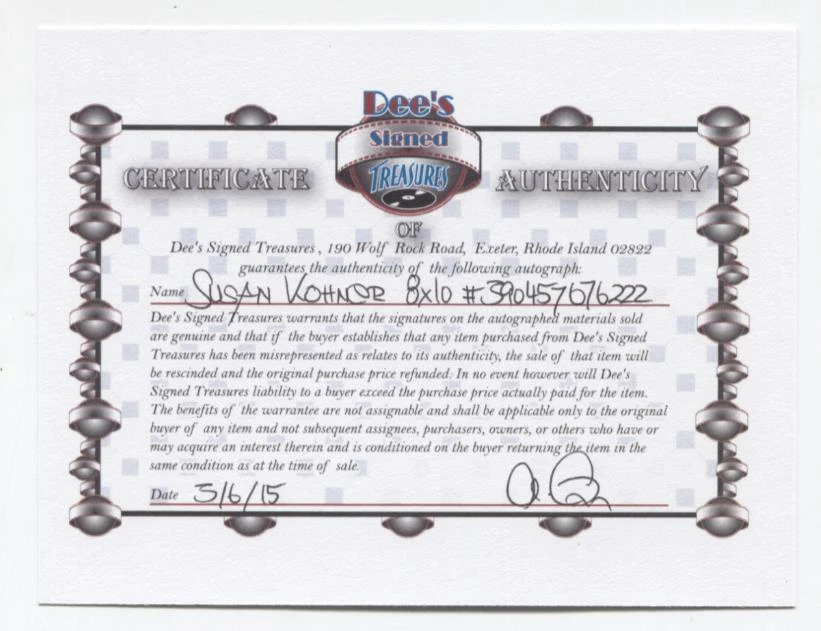 Dee's
Signed
TREASURES
CERTIFICATE
OF
AUTHENTICITY
Dee's Signed Treasures , 190 Wolf Rock Road, Exeter, Rhode Island 02822
guarantees the authenticity of the following autograph:
Name SUSAN KOHNER 8x10 #390457676222
Dee's Signed Treasures warrants that the signatures on the autographed materials sold
are genuine and that if the buyer establishes that any item purchased from Dee's Signed
Treasures has been misrepresented as relates to its authenticity, the sale of that item will
be rescinded and the original purchase price refunded. In no event however will Dee's
Signed Treasures liability to a buyer exceed the purchase price actually paid for the item.
The benefits of the warrantee are not assignable and shall be applicable only to the original
buyer of any item and not subsequent assignees, purchasers, owners, or others who have or
may acquire an interest therein and is conditioned on the buyer returning the item in the
same condition as at the time of sale.
Date 3/6/15